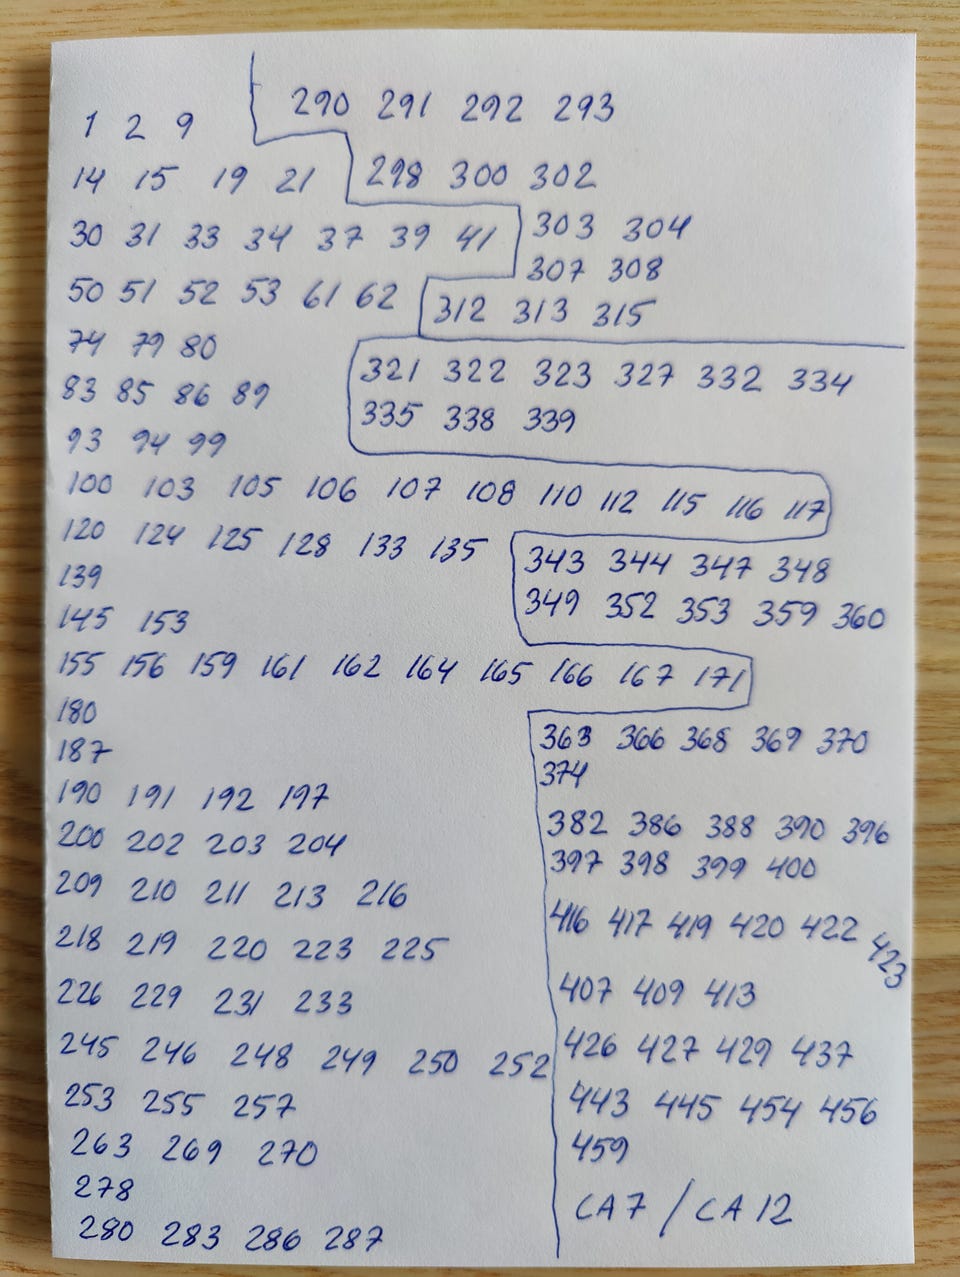 1 2 9
14 15 19 21
30 31 33 34 37 39 41
50 51 52 53 61 62
74 79 80
83 85 86 89
93 94 99
100 103 105 106 107 108 110 112 115 116 117
120 124 125 128 133 135
139
145 153
155 156 159 161 162 164 165 166 167 171
180
187
190 191 192 197
200 202 203 204
209 210 211 213 216
218 219 220 223 225
226 229 231 233
245 246 248 249 250 252
253 255 257
263 269 270
278
280 283 286 287
290 291 292 293
298 300 302
303 304
307 308
312 313 315
321 322 323 327 332 334
335 338 339
343 344 347 348
349 352 353 359 360
363 366 368 369 370
374
382 386 388 390 396
397 398 399 400
416 417 419 420 422 423
407 409 413
426 427 429 437
443 445 454 456
459
CA7 / CA12